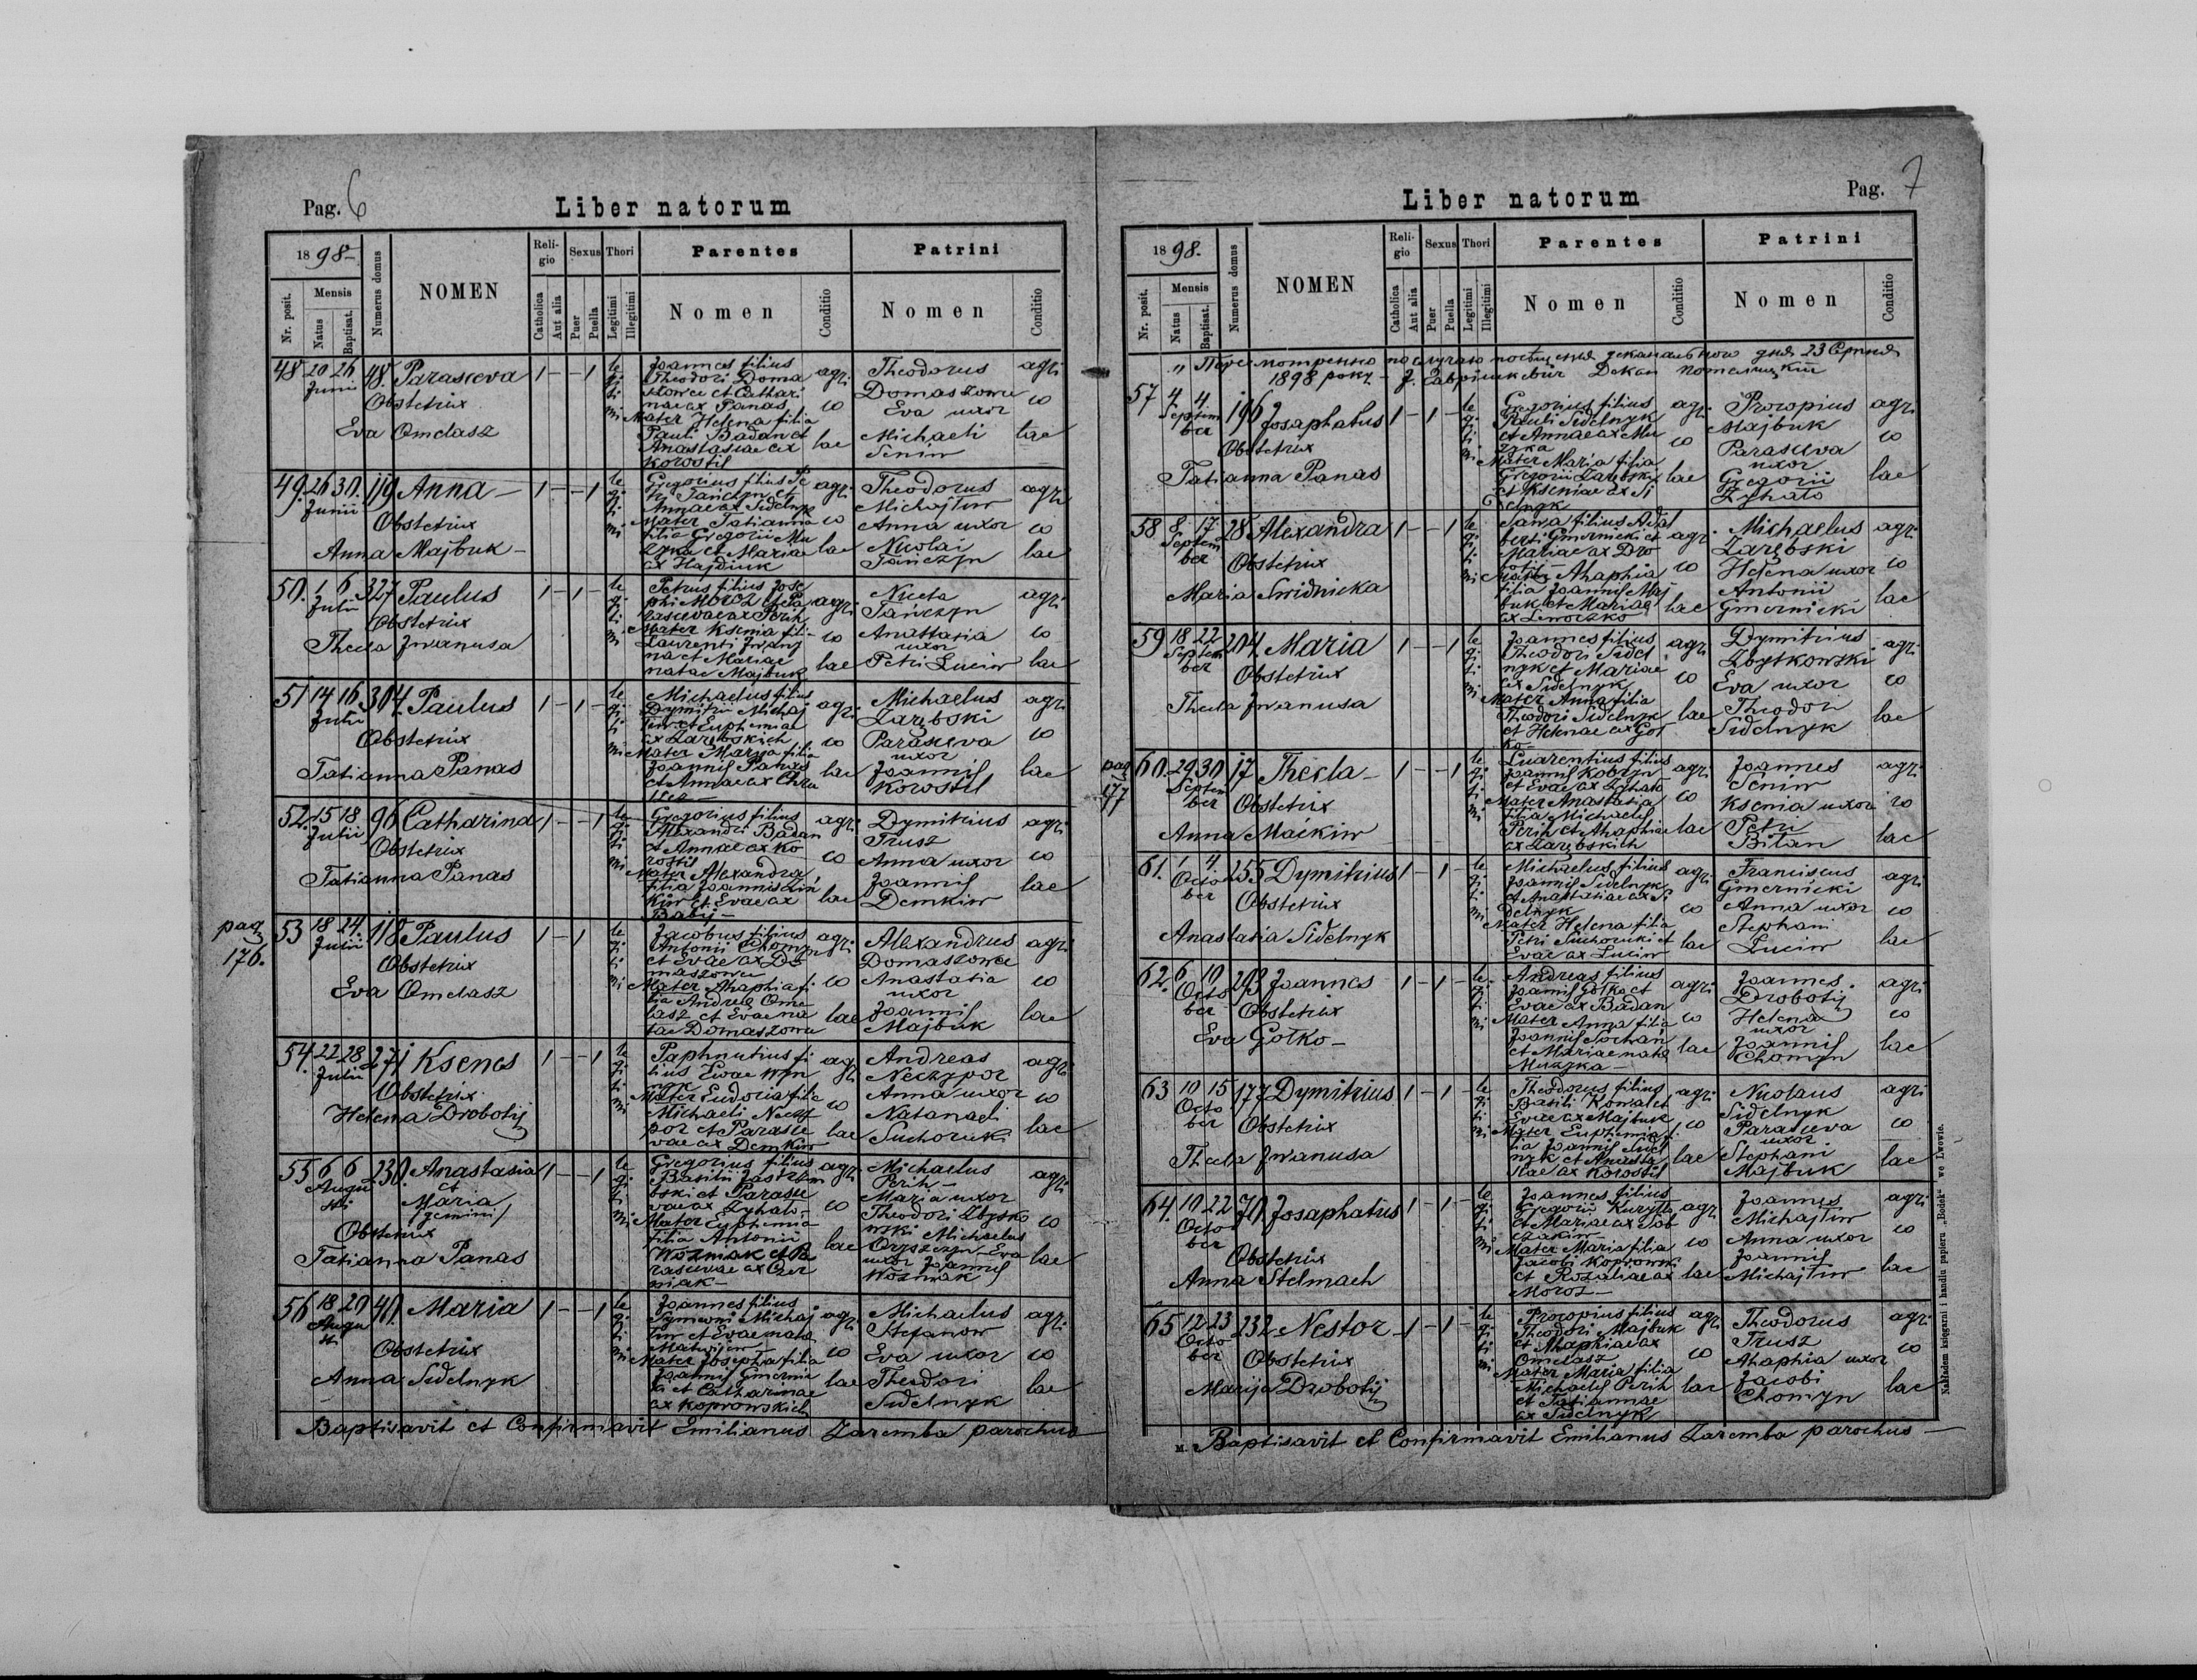 Pag. 6
Liber natorum
1898
Nr. posit.
Mensis
Natus
Baptisat.
Numerus domus
NOMEN
Religio
Catholica
Aut alia
Sexus
Puer
Puella
Thori
Legitimi
Illegitimi
Parentes
Nomen
Conditio
Patrini
Nomen
Conditio
48 20 26 Junii 48. Parasceva 1 – – 1 legitimi
Obstetrix
Eva Omelasz
Joannes filius
Theodori Doma
szowec et Cathari
nae ex Panas
Mater Helena filia
Pauli Badan et
Anastasiae ex
Korostil
agricolae
Theodorus
Domaszowec
Eva uxor
Michaeli
Seniw
agricolae
49. 26 30. Junii 119 Anna – 1 – – 1 legitimi
Obstetrix
Anna Majbuk –
Gregorius filius Pe
tri Tańczyn et
Annae ex Sidelnyk
Mater Tatianna
filia Gregorii Mu
zyka et Mariae
ex Hajdiuk
agricolae
Theodorus
Michajliw
Anna uxor
Nicolai
Tańczyn
agricolae
50. 1 6 Julii 327 Paulus 1 – 1 – legitimi
Obstetrix
Thecla Iwanusa
Petrus filius Jose
phi Moroz et Pa
rascevae ex Perih
Mater Ksenia fili
Laurenti Iwany
na et Mariae
natae Majbuk
agricolae
Niceta
Tańczyn
Anastasia
uxor
Petri Luciw
agricolae
51 14 16 Julii 304. Paulus 1 – 1 – legitimi
Obstetrix
Tatianna Panas
Michaelus filius
Dymitrii Michaj
liw et Euphemiae
ex Zarębskich
Mater Maryja filia
Joannis Panas
et Annae ex
agricolae
Michaelus
Zarębski
Parasceva
uxor
Joannis
Korostil
agricolae
52. 15 18 Julii 96 Catharina 1 – – 1 legitimi
Obstetrix
Tatianna Panas
Gregorius filius
Alexandri Badan
et Annae ex Ko
rostil
Mater Alexandra
filia Joannis
kiw et Evae ex
Babij –
agricolae
Dymitrius
Trusz
Anna uxor
Joannis
Demkiw
agricolae
pag
176.
53 18 24. Julii 118 Paulus 1 – 1 legitimi
Obstetrix
Eva Omelasz
Jacobus filius
Antonii Chomyn
et Evae ex Do
maszowec
Mater Ahaphia fi
lia Andrea Ome
lasz et Evae na
tae Domaszowec
agricolae
Alexandrus
Domaszowec
Anastasia
uxor
Joannis
Majbuk
agricolae
54. 22 28 Julii 271 Ksenes 1 – – 1 legitimi
Obstetrix
Helena Drobotij
Paphnutius fi
lius Evae Wyn
nyk
Mater Eudoxia filia
Michaeli Neczy
por et Parasce
vae ex Demkiw
agricolae
Andreas
Neczypor
Anna uxor
Natanaeli
Suchoruk.
agricolae
55 6 6 Augusti 230. Anastasia 1 – – 1 legitimi
et
Maria
/gemini/
Obstetrix
Tatianna Panas
Gregorius filius
Basilii Jastrzem
bski et Parasce
vae ex Zyhalo –
Mater Euphemia
filia Antonii
Wozniak et Pa
rascevae ex Czer
niak –
agricolae
Michaelus
Perih –
Maria uxor
Theodori Zbytko
wski Michaelus
Oryszczyn – Eva
uxor Joannis
Wozniak
agricolae
56 18 20 Augusti 40. Maria 1 – – 1 legitimi
Obstetrix
Anna Sidelnyk
Joannes filius
Symeoni Michaj
liw et Evae nata
Matwijiw
Mater Josepha filia
Joannis Gmernic
ki et Catharinae
ex Koprowskich
agricolae
Michaelus
Stefanow
Eva uxor
Theodori
Sidelnyk
agricolae
Baptisavit et Confirmavit Emilianus Zaremba parochus
Pag. 7
Liber natorum
1898.
Nr. posit.
Mensis
Natus
Baptisat.
Numerus domus
NOMEN
Religio
Catholica
Aut alia
Sexus
Puer
Puella
Thori
Legitimi
Illegitimi
Parentes
Nomen
Conditio
Patrini
Nomen
Conditio
дня 23 Серпня
1898 року – Декан
57 4 4 September 196 Josaphatus 1 – 1 – legitimi
Obstetrix
Tatianna Panas
Gregorius filius
Pauli Sidelnyk
et Annae ex Mu
zyka
Mater Maria filia
Gregorii Zarębski
et Kseniae ex Si
delnyk
agricolae
Procopius
Majbuk
Parasceva
uxor
Gregorii
Zyhalo
agricolae
58 8 17 September 28 Alexandra 1 – – 1 legitimi
Obstetrix
Maria Swidnicka
Sawa filius Adal
berti Gmernicki et
Mariae ex Dro
botij –
Mater Ahaphia
filia Joannis Maj
buk et Mariae
ex Lewoczko
agricolae
Michaelus
Zarębski
Helena uxor
Antonii
Gmernicki
agricolae
59 18 22 September 204. Maria 1 – – 1 legitimi
Obstetrix
Thecla Iwanusa
Joannes filius
Theodori Sidel
nyk et Mariae
ex Sidelnyk
Mater Anna filia
Theodori Sidelnyk
et Helenae ex Goł
ko –
agricolae
Dymitrius
Zbytkowski
Eva uxor
Theodori
Sidelnyk
agricolae
pag
177
60. 29 30 September 17 Thecla – 1 – – 1 legitimi
Obstetrix
Anna Maćkiw
Luarentius filius
Joannis Kobryn
et Evae ex Zyhalo
Mater Anastasia
filia Michaelis
Perih et Ahaphiae
ex Zarębskich
agricolae
Joannes
Seniw
Ksenia uxor
Petri
Bilan
agricolae
61. 1 4 October 255 Dymitrius 1 – 1 – legitimi
Obstetrix
Anastasia Sidelnyk
Michaelus filius
Joannis Sidelnyk
et Anastasiae ex Si
delnyk
Mater Helena filia
Petri Suchoruki et
Evae ex Luciw
agricolae
Franciscus
Gmernicki
Anna uxor
Stephani
Luciw
agricolae
62. 6 10 October 293 Joannes 1 – 1 – legitimi
Obstetrix
Eva Gołko –
Andreas filius
Joannis Gołko et
Evae ex Badan
Mater Anna filia
Joannis Sochan
et Mariae nata
Muzyka –
agricolae
Joannes
Drobotij
Helena
uxor
Joannis
Chomyn
agricolae
63 10 15 October 177 Dymitrius 1 – 1 – legitimi
Obstetrix
Thecla Iwanusa
Theodorus filius
Basili Kowal et
Evae ex Majbuk
Mater Euphemia fi
lia Joannis Sidel
nyk et Anasta
siae ex Korostil
agricolae
Nicolaus
Sidelnyk
Parasceva
uxor
Stephani
Majbuk
agricolae
64. 10 22 October 70. Josaphatus 1 – 1 – legitimi
Obstetrix
Anna Stelmach
Joannes filius
Gregorii Kuryłło
et Mariae ex Sob
czakiw –
Mater Maria filia
Jacobi Koprowski
et Rozaliae ex
Moroz –
agricolae
Joannes
Michajliw
Anna uxor
Joannis
Michajliw
agricolae
65 12 23 October 232 Nestor – 1 – 1 – legitimi
Obstetrix
Marija Drobotij
Procopius filius
Theodori Majbuk
et Ahaphiae ex
Omelasz
Mater Maria filia
Michaelis Perih
et Tatiannae
ex Sidelnyk
agricolae
Theodorus
Trusz
Ahaphia uxor
Jacobi
Chomyn
agricolae
Baptisavit et Confirmavit Emilianus Zaremba parochus –
Nakładem księgarni i handlu papieru „Bodek" we Lwowie.